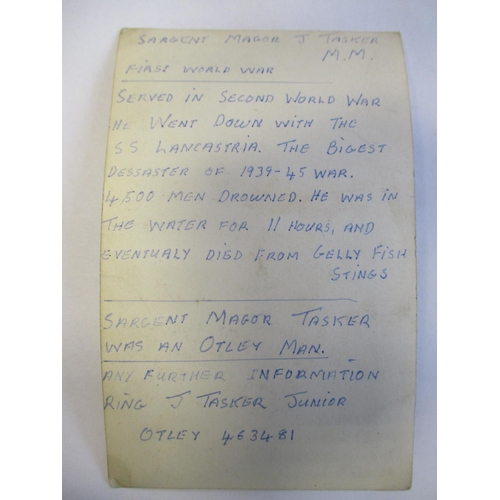 SARGENT MAGOR J TASKER
M.M.
FIRST WORLD WAR
SERVED IN SECOND WORLD WAR
HE WENT DOWN WITH THE
SS LANCASTRIA. THE BIGEST
DESSASTER OF 1939-45 WAR.
4,500 MEN DROWNED. HE WAS IN
THE WATER FOR 11 HOURS, AND
EVENTUALY DIED FROM GELLY FISH
STINGS
SARGENT MAGOR TASKER
WAS AN OTLEY MAN.
ANY FURTHER INFORMATION
RING J TASKER JUNIOR
OTLEY 463481